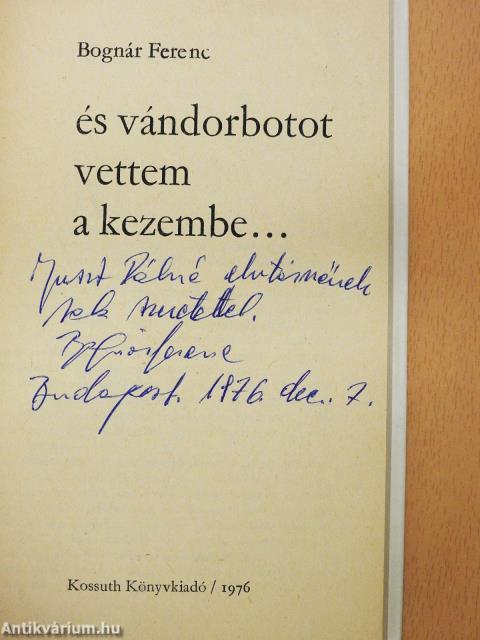 Bognár Ferenc
és vándorbotot
vettem
a kezembe...
Juszt Pálné elvtársnőnek
sok szeretettel.
Bognár Ferenc
Budapest. 1976. dec. 7.
Kossuth Könyvkiadó / 1976
Antikvárium.hu